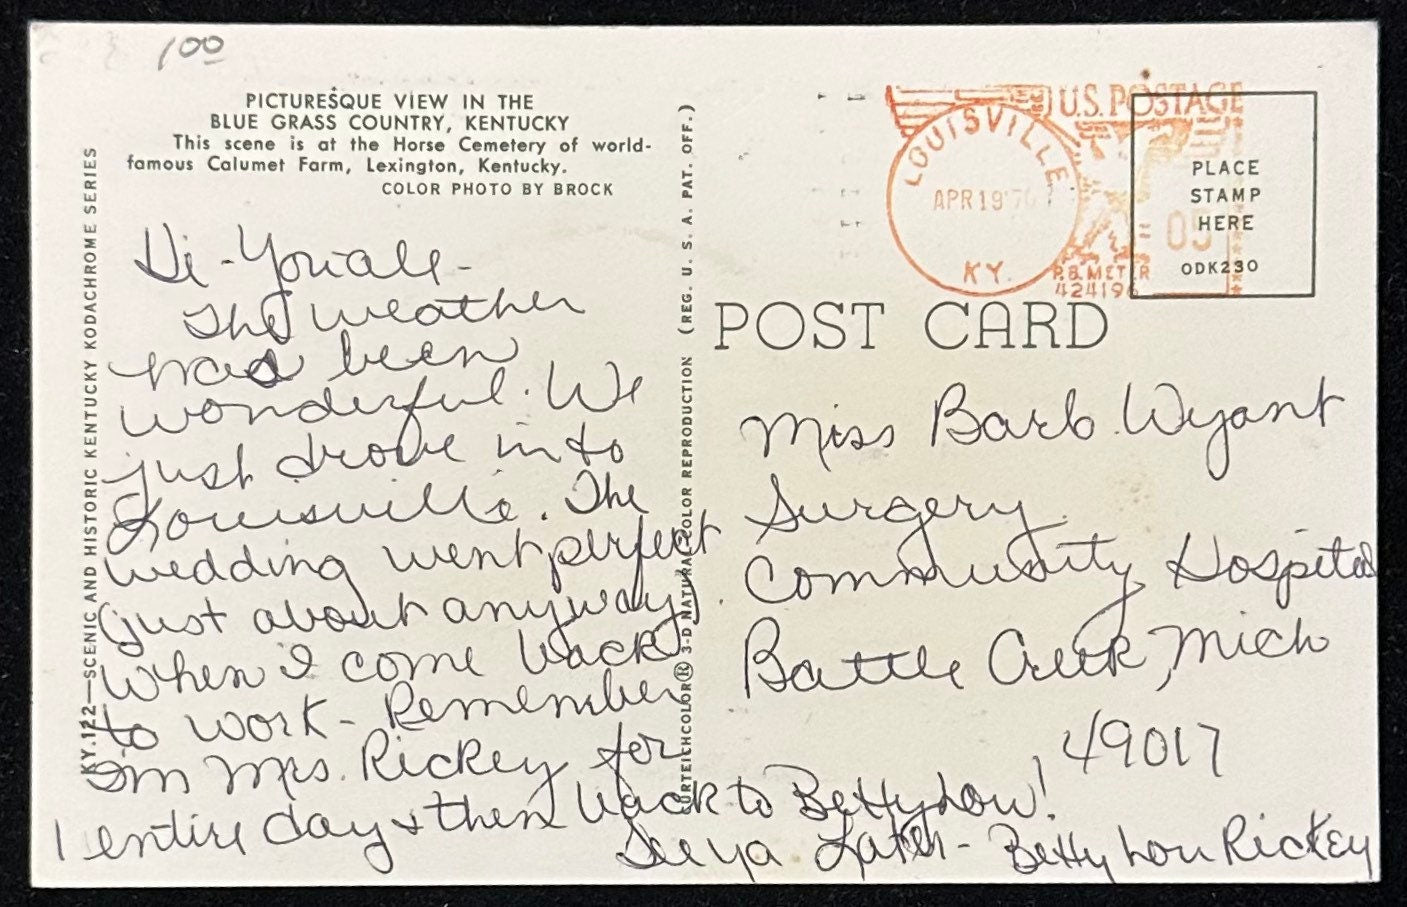 100
PICTURESQUE VIEW IN THE
BLUE GRASS COUNTRY, KENTUCKY
This scene is at the Horse Cemetery of world-
famous Calumet Farm, Lexington, Kentucky.
COLOR PHOTO BY BROCK
KY.122—SCENIC AND HISTORIC KENTUCKY KODACHROME SERIES
Hi - Youall -
The weather
has been
wonderful. We
just drove into
Louisville. The
wedding went perfect
(just about anyway).
When I come back
to work - Remember
I'm Mrs. Rickey for
1 entire day & then back to Betty Lou!
See ya Later - Betty Lou Rickey
CURTEICHCOLOR® 3-D NATURAL COLOR REPRODUCTION (REG. U. S. A. PAT. OFF.)
U.S. POSTAGE
LOUISVILLE
APR 19'70
KY.
05
P.B. METER
424196
PLACE
STAMP
HERE
ODK230
POST CARD
Miss Barb Wyant
Surgery
Community Hospital
Battle Creek, Mich
49017